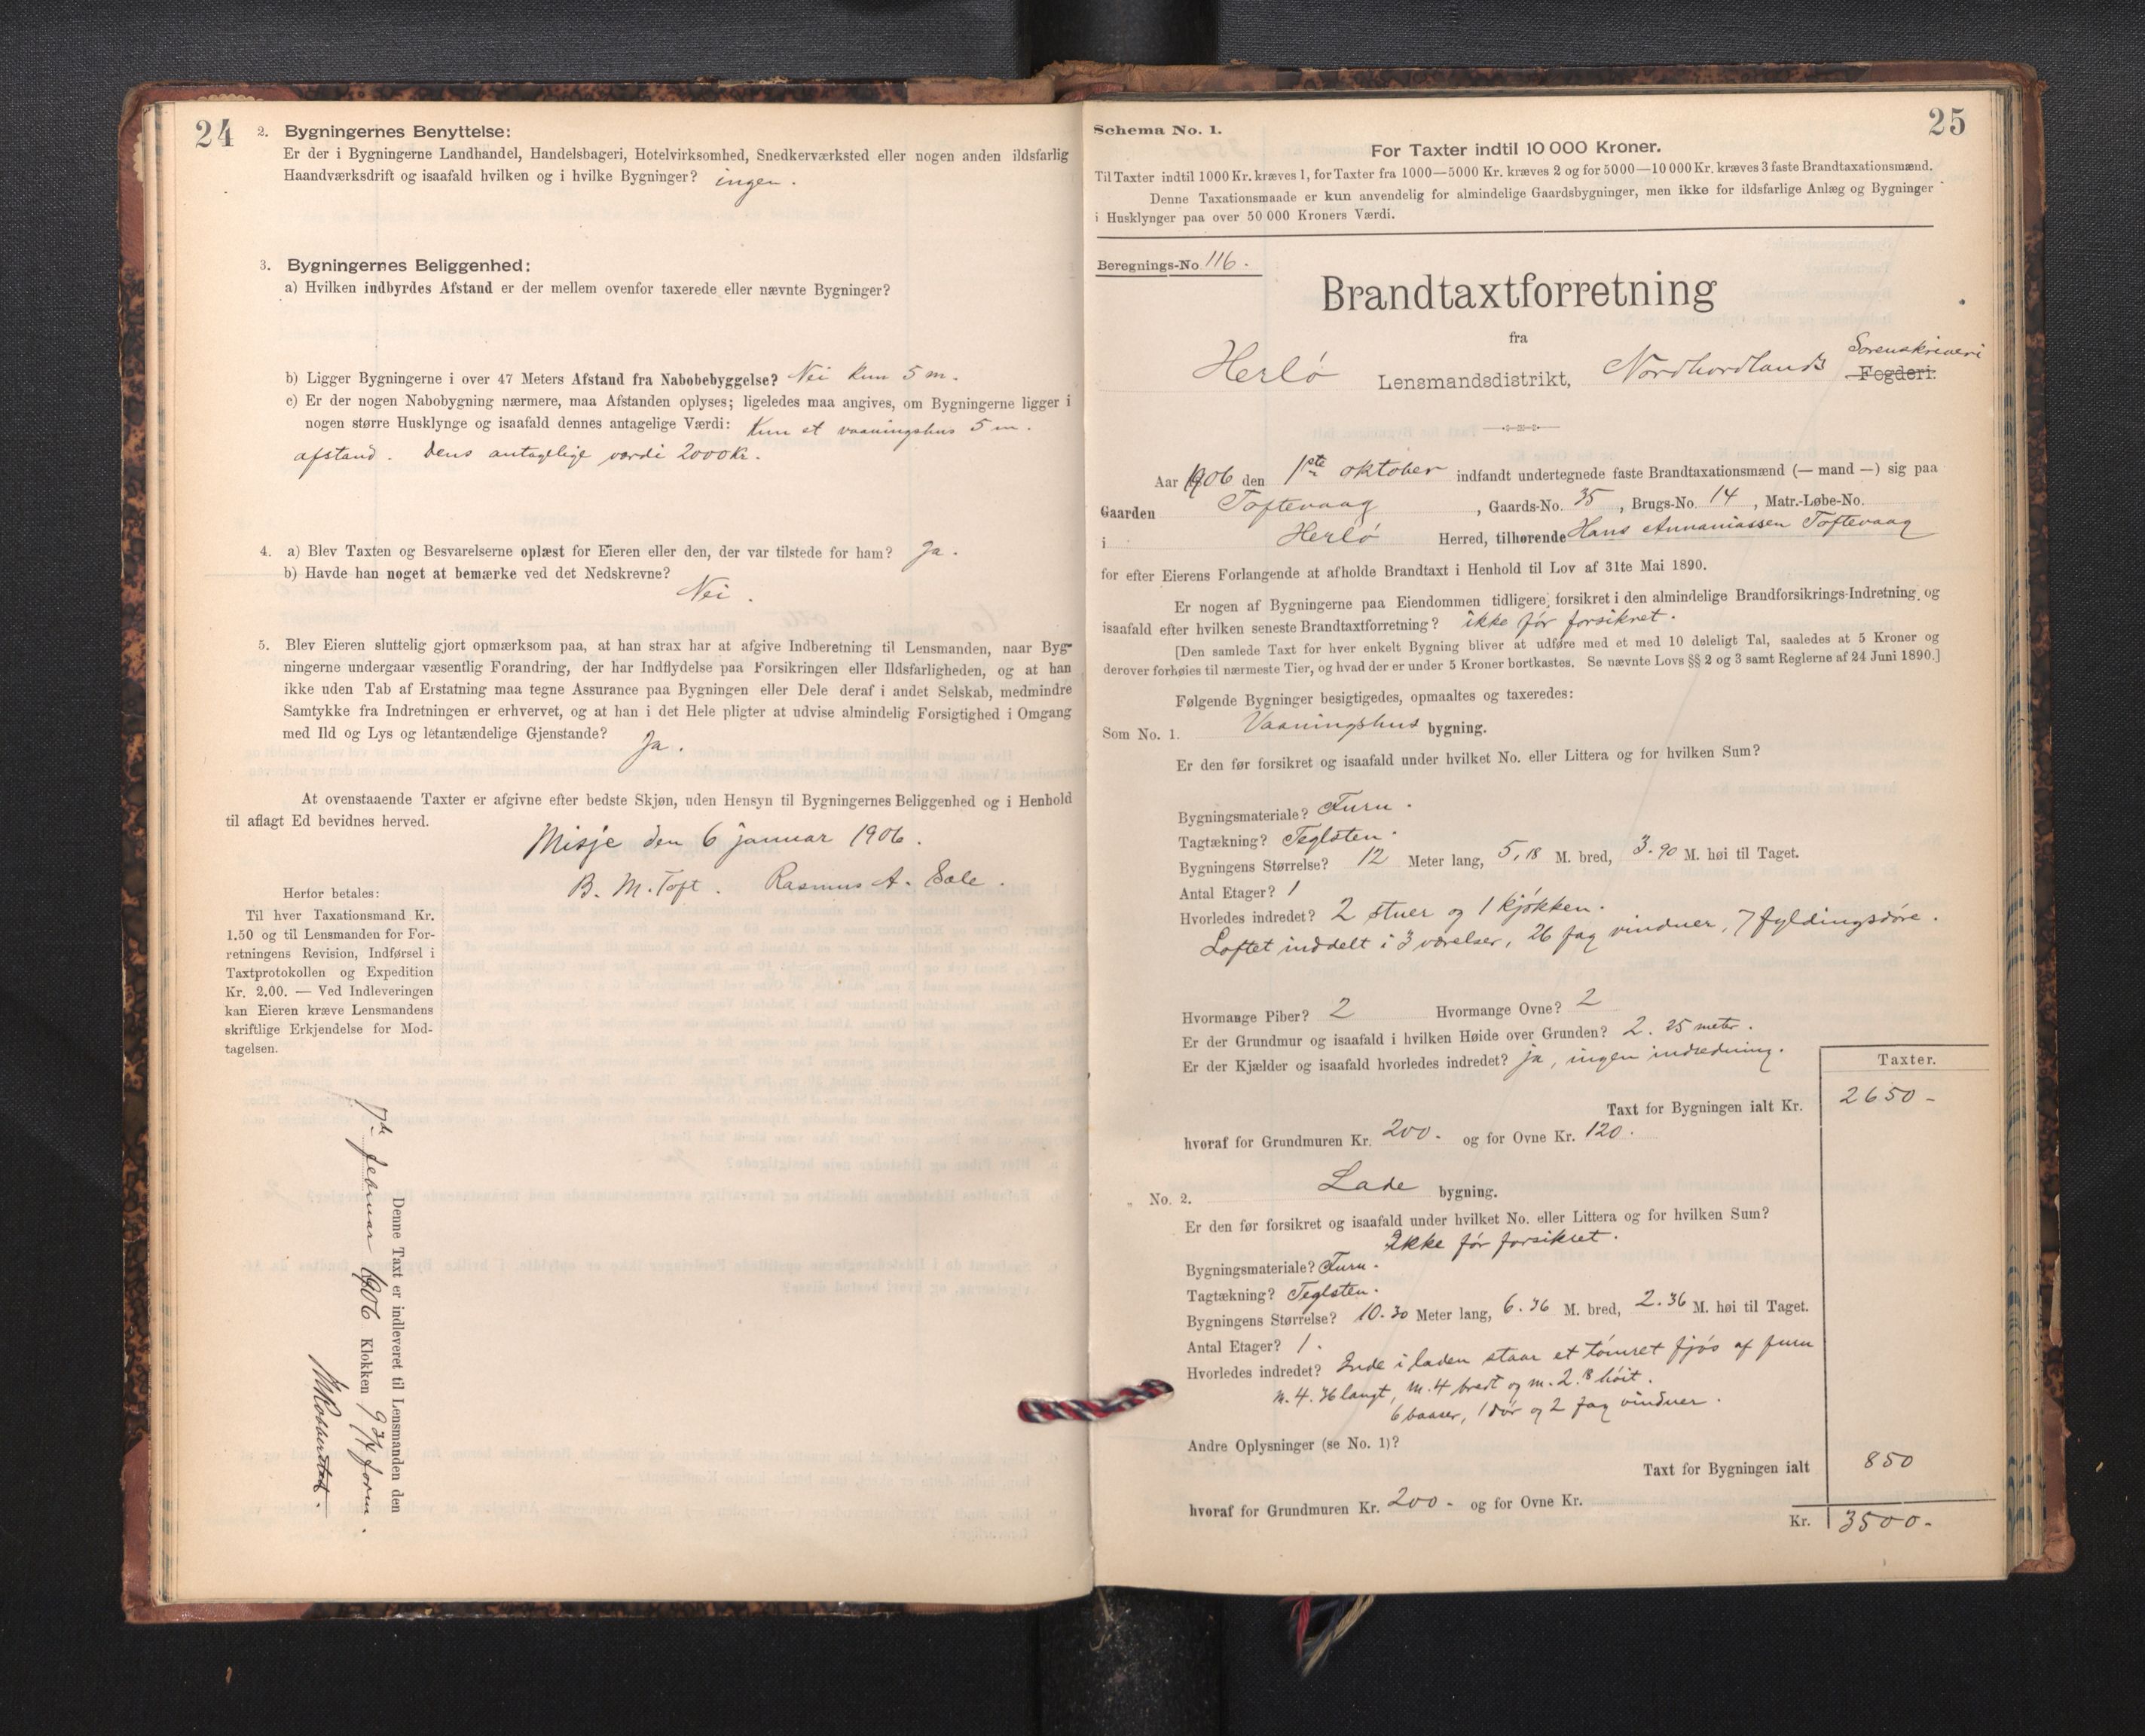 24
2. Bygningernes Benyttelse:
Er der i Bygningerne Landhandel, Handelsbageri, Hotelvirksomhed, Snedkerværksted eller nogen anden ildsfarlig
Haandværksdrift og isaafald hvilken og i hvilke Bygninger? ingen.
3. Bygningernes Beliggenhed:
a) Hvilken indbyrdes Afstand er der mellem ovenfor taxerede eller nævnte Bygninger?
b) Ligger Bygningerne i over 47 Meters Afstand fra Nabobebyggelse? Nei kun 5 m.
c) Er der nogen Nabobygning nærmere, maa Afstanden oplyses; ligeledes maa angives, om Bygningerne ligger i
nogen større Husklynge og isaafald dennes antagelige Værdi: Kun et vaaningshus 5 m.
afstand. Dens antagelige værdi 2000 kr.
4. a) Blev Taxten og Besvarelserne oplæst for Eieren eller den, der var tilstede for ham? Ja.
b) Havde han noget at bemærke ved det Nedskrevne?
Nei.
5. Blev Eieren sluttelig gjort opmærksom paa, at han strax har at afgive Indberetning til Lensmanden, naar Byg-
ningerne undergaar væsentlig Forandring, der har Indflydelse paa Forsikringen eller Ildsfarligheden, og at han
ikke uden Tab af Erstatning maa tegne Assurance paa Bygningen eller Dele deraf i andet Selskab, medmindre
Samtykke fra Indretningen er erhvervet, og at han i det Hele pligter at udvise almindelig Forsigtighed i Omgang
med Ild og Lys og letantændelige Gjenstande? Ja.
At ovenstaaende Taxter er afgivne efter bedste Skjøn, uden Hensyn til Bygningernes Beliggenhed og i Henhold
til aflagt Ed bevidnes herved.
Misje den 6 januar 1906.
B. M. Toft. Rasmus A. Sæle.
Herfor betales:
Til hver Taxationsmand Kr.
1.50 og til Lensmanden for For-
retningens Revision, Indførsel i
Taxtprotokollen og Expedition
Kr. 2.00. — Ved Indleveringen
kan Eieren kræve Lensmandens
skriftlige Erkjendelse for Mod-
tagelsen.
Denne Taxt er indleveret til Lensmanden den
7de februar 1906 Klokken 9 3/4 form.
25
Schema No. 1.
For Taxter indtil 10 000 Kroner.
Til Taxter indtil 1000 Kr. kræves 1, for Taxter fra 1000—5000 Kr. kræves 2 og for 5000—10 000 Kr. kræves 3 faste Brandtaxationsmænd.
Denne Taxationsmaade er kun anvendelig for almindelige Gaardsbygninger, men ikke for ildsfarlige Anlæg og Bygninger
i Husklynger paa over 50 000 Kroners Værdi.
Beregnings-No 116.
Brandtaxtforretning
fra
Herlø Lensmandsdistrikt, Nordhordlands Sorenskriveri Fogderi.
Aar 1906 den 1ste oktober indfandt undertegnede faste Brandtaxationsmænd (— mand —) sig paa
Gaarden Toftevaag, Gaards-No. 35, Brugs-No. 14, Matr.-Løbe-No.
i Herlø Herred, tilhørende Hans Annaniassen Toftevaag
for efter Eierens Forlangende at afholde Brandtaxt i Henhold til Lov af 31te Mai 1890.
Er nogen af Bygningerne paa Eiendommen tidligere forsikret i den almindelige Brandforsikrings-Indretning og
isaafald efter hvilken seneste Brandtaxtforretning? ikke før forsikret.
[Den samlede Taxt for hver enkelt Bygning bliver at udføre med et med 10 deleligt Tal, saaledes at 5 Kroner og
derover forhøies til nærmeste Tier, og hvad der er under 5 Kroner bortkastes. Se nævnte Lovs §§ 2 og 3 samt Reglerne af 24 Juni 1890.]
Følgende Bygninger besigtigedes, opmaaltes og taxeredes:
Som No. 1. Vaaningshus bygning.
Er den før forsikret og isaafald under hvilket No. eller Littera og for hvilken Sum?
Bygningsmateriale? Furu.
Tagtækning? Teglsten.
Bygningens Størrelse? 12 Meter lang, 5,18 M. bred, 3.90 M. høi til Taget.
Antal Etager? 1
Hvorledes indredet? 2 stuer og 1 kjøkken.
Loftet inddelt i 3 værelser, 26 fag vinduer, 7 fyldingsdøre.
Hvormange Piber? 2 Hvormange Ovne? 2
Er der Grundmur og isaafald i hvilken Høide over Grunden? 2.25 meter.
Er der Kjælder og isaafald hvorledes indredet? ja, ingen indredning.
Taxter.
Taxt for Bygningen ialt Kr. 2650-
hvoraf for Grundmuren Kr. 200. og for Ovne Kr. 120.
" No. 2. Lade bygning.
Er den før forsikret og isaafald under hvilket No. eller Littera og for hvilken Sum?
Ikke før forsikret.
Bygningsmateriale? Furu.
Tagtækning? Teglsten.
Bygningens Størrelse? 10.30 Meter lang, 6.36 M. bred, 2.36 M. høi til Taget.
Antal Etager? 1.
Hvorledes indredet? Inde i laden staar et tømret fjøs af furu
m. 4.36 langt, m. 4 bredt og m. 2.8 høit.
6 baaser, 1 dør og 2 fag vinduer.
Andre Oplysninger (se No. 1)?
Taxt for Bygningen ialt 850
hvoraf for Grundmuren Kr. 200- og for Ovne Kr.
Kr. 3500-